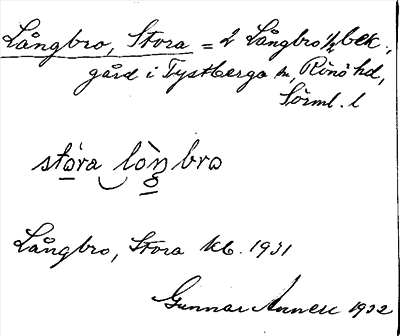 Långbro, Stora = 2 Långbro ½ bek.,
gård i Tystberga sn, Rönö hd,
Sörml. l
stora långbro
Långbro, Stora kb. 1931
Gunnar 1932